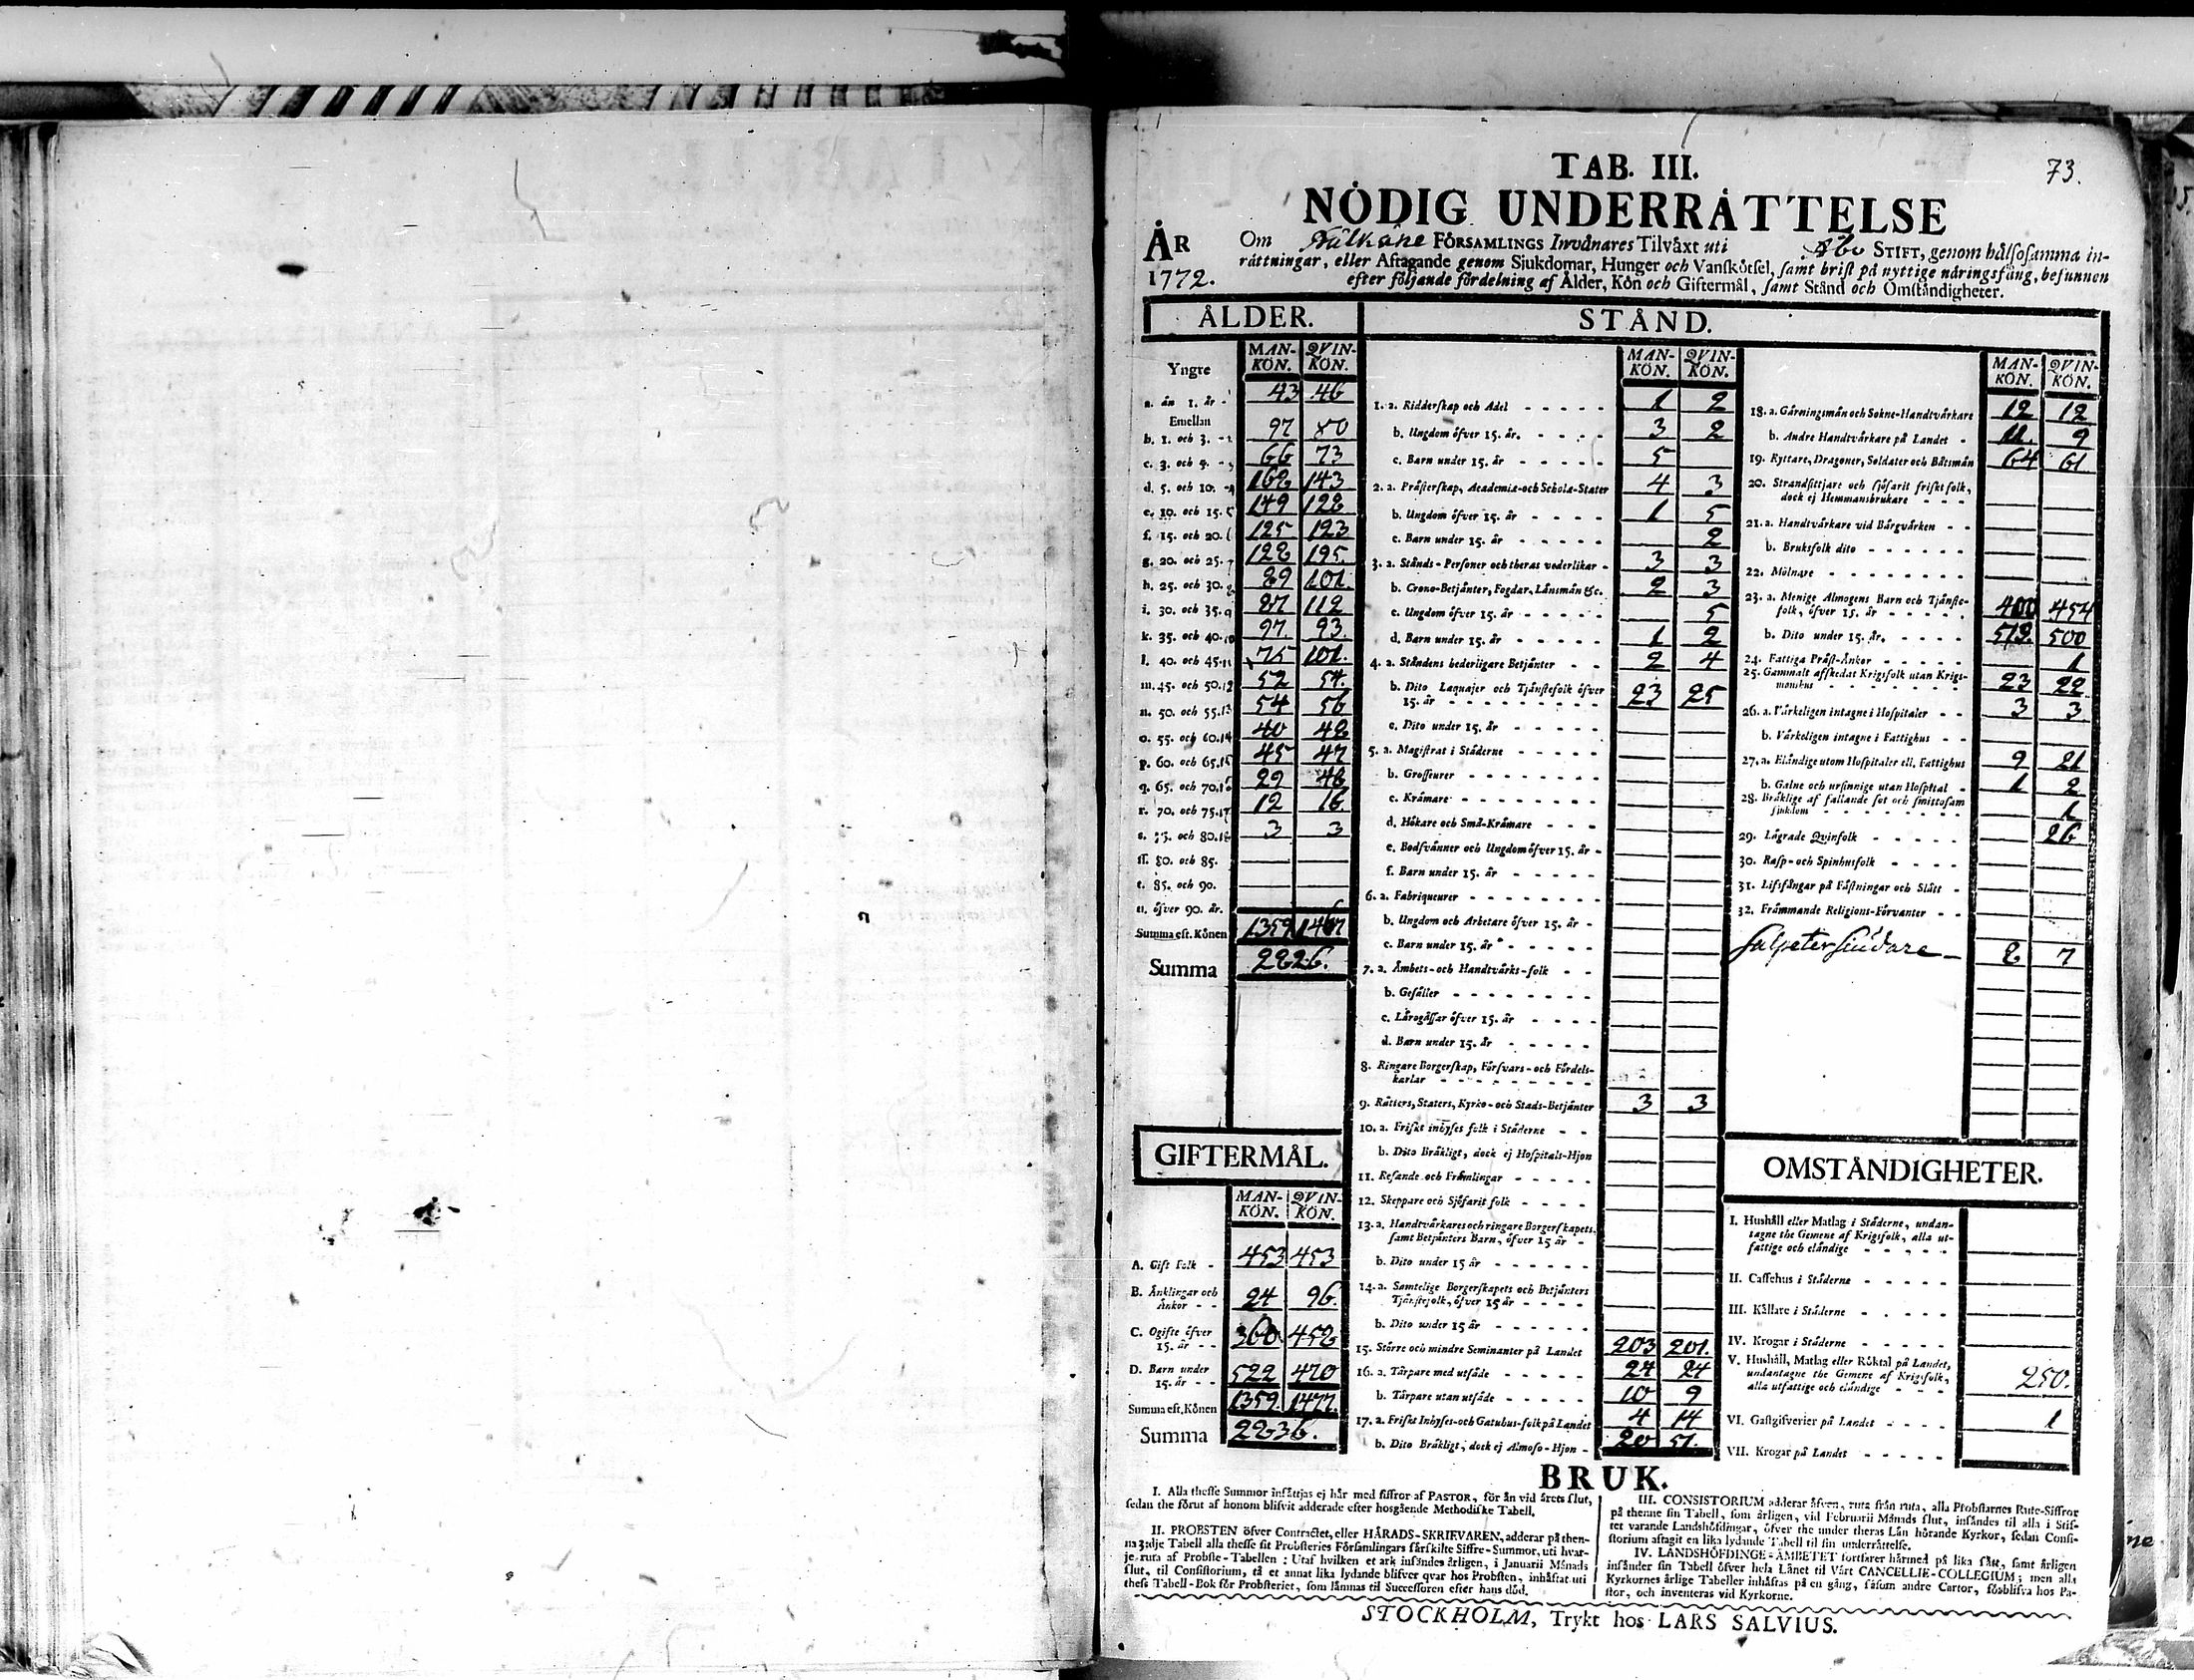 73.
TAB. III.
NÖDIG UNDERRÄTTELSE
ÅR
1772.
Om Kålkåne FÖRSAMLINGS Invånares Tilväxt uti Åbo STIFT, genom hålsosamma in-
råttningar, eller Aftagande genom Sjukdomar, Hunger och Vanskötsel, samt brist på nyttige näringsfång, befunnen
efter följande fördelning af Ålder, Kön och Giftermål, samt Stånd och Omståndigheter.
ÅLDER.
MAN-KÖN. QVIN-KÖN.
Yngre
a. än 1. år - 43 46
Emellan
b. 1. och 3. - 97 80
c. 3. och 5. - 66 73
d. 5. och 10. - 4 162 143
e. 10. och 15. 5 149 128
f. 15. och 20. 6 125 123
g. 20. och 25. 7 128 195.
h. 25. och 30. 8 89 101.
i. 30. och 35. 9 87 112
k. 35. och 40. 10 97. 93.
l. 40. och 45. 11 75 101.
m. 45. och 50. 12 52 54.
n. 50. och 55. 13 54 56
o. 55. och 60. 14 40 48
p. 60. och 65. 15 45 47
q. 65. och 70. 16 29 48
r. 70. och 75. 17 12 16
s. 75. och 80. 18 3 3
ss. 80. och 85.
t. 85. och 90.
u. öfver 90. år.
Summa eft. Könen 1359 1467
Summa 2826.
GIFTERMÅL.
MAN-KÖN. QVIN-KÖN.
A. Gift folk - 453 453
B. Änklingar och
Änkor - - 24 96.
C. Ogifte öfver
15. år - - 360 458
D. Barn under
15. år - - 522 470
Summa eft. Könen 1359. 1477.
Summa 2836.
STÅND.
MAN-KÖN. QVIN-KÖN.
1. a. Ridderskap och Adel - - - - - 1 2
b. Ungdom öfver 15. år. - - - - 3 2
c. Barn under 15. år - - - - - 5
2. a. Prästerskap, Academiæ-och Scholæ-Stater 4 3
b. Ungdom öfver 15. år - - - - 1 5
c. Barn under 15. år - - - - - 2
3. a. Stånds-Personer och theras vederlikar - 3 3
b. Crono-Betjänter, Fogdar, Länsmän &c. 2 3
c. Ungdom öfver 15. år - - - - 5
d. Barn under 15. år - - - - - 1 2
4. a. Ståndens hederligare Betjänter - - 2 4
b. Dito Laquajer och Tjänstefolk öfver
15. år - - - - - - - - - 23 25
c. Dito under 15. år - - - - -
5. a. Magistrat i Städerne - - - - -
b. Grosseurer - - - - - - - -
c. Krämare - - - - - - - - -
d. Hökare och Små-Krämare - - -
e. Bodsvänner och Ungdom öfver 15. år -
f. Barn under 15. år - - - - -
6. a. Fabriqueurer - - - - - - - -
b. Ungdom och Arbetare öfver 15. år -
c. Barn under 15. år - - - - -
7. a. Ämbets-och Handtvärks-folk - -
b. Gesäller - - - - - - - -
c. Lärogässar öfver 15. år - - - -
d. Barn under 15. år - - - - -
8. Ringare Borgerskap, Försvars-och Fördels-
karlar - - - - - - - - -
9. Rätters, Staters, Kyrko-och Stads-Betjänter 3 3
10. a. Friskt inhyses folk i Städerne - -
b. Dito Bräkligt, dock ej Hospitals-Hjon
11. Resande och Främlingar - - - - -
12. Skeppare och Sjöfarit folk - - - -
13. a. Handtvärkares och ringare Borgerskapets,
samt Betjänters Barn, öfver 15 år -
b. Dito under 15 år - - - - - -
14. a. Samtelige Borgerskapets och Betjänters
Tjänstefolk, öfver 15 år - - - -
b. Dito under 15 år - - - - - -
15. Större och mindre Hemmanter på Landet 203 201.
16. a. Tårpare med utsäde - - - - - 24 24
b. Tårpare utan utsäde - - - - 10 9
17. a. Friskt Inhyses-och Gatuhus-folk på Landet 4 14
b. Dito Bräkligt, dock ej Almoso-Hjon - 20 51.
MAN-KÖN. QVIN-KÖN.
18. a. Gärningsmän och Sokne-Handtvärkare 12 12
b. Andre Handtvärkare på Landet - 11. 9
19. Ryttare, Dragoner, Soldater och Båtsmän 64 61
20. Strandsittjare och sjöfarit friskt folk,
dock ej Hemmansbrukare - - -
21. a. Handtvärkare vid Bärgvärken - -
b. Bruksfolk dito - - - - - -
22. Mölnare - - - - - - - -
23. a. Menige Almogens Barn och Tjänste-
folk, öfver 15. år - - - - - 400 454
b. Dito under 15. år. - - - - 512. 500
24. Fattiga Präst-Änkor - - - - - 1
25. Gammalt affkedat Krigsfolk utan Krigs-
manshus - - - - - - - 23 22
26. a. Värkeligen intagne i Hospitaler - - 3 3
b. Värkeligen intagne i Fattighus - -
27. a. Eländige utom Hospitaler ell. Fattighus 9 21
b. Galne och ursinnige utan Hospital - 1 2
28. Bräklige af fallande sot och smittosam
sjukdom - - - - - - - 1
29. Lägrade Qvinfolk - - - - - 26
30. Rasp-och Spinhusfolk - - - -
31. Lifsfångar på Fästningar och Slått -
32. Främmande Religions-Förvanter - -
Salpeter siudare - 8 7
OMSTÅNDIGHETER.
I. Hushåll eller Matlag i Städerne, undan-
tagne the Gemene af Krigsfolk, alla ut-
fattige och eländige - - - - -
II. Caffehus i Städerne - - - - -
III. Källare i Städerne - - - - -
IV. Krogar i Städerne - - - - -
V. Hushåll, Matlag eller Röktal på Landet,
undantagne the Gemene af Krigsfolk,
alla utfattige och eländige - - - 250.
VI. Gästgifverier på Landet - - - - 1
VII. Krogar på Landet - - - - -
BRUK.
I. Alla thesse Summor insättjas ej här med siffror af PASTOR, för än vid årets slut,
sedan the förut af honom blifvit adderade efter hosgående Methodiske Tabell.
II. PROBSTEN öfver Contractet, eller HÄRADS-SKRIFVAREN, adderar på then-
na 3:dje Tabell alla thesse sit Probsteries Församlingars särskilte Siffre-Summor, uti hvar-
je ruta af Probste-Tabellen: Utaf hvilken et ark insändes årligen, i Januarii Månads
slut, til Consistorium, tå et annat lika lydande blifver qvar hos Probsten, inhäftat uti
thess Tabell-Bok för Probsteriet, som lämnas til Successoren efter hans död.
III. CONSISTORIUM adderar äfven, ruta från ruta, alla Probstarnes Rute-Siffror
på thenne sin Tabell, som årligen, vid Februarii Månads slut, insändes til alla i Stif-
tet varande Landshöfdingar, öfver the under theras Län hörande Kyrkor, sedan Consi-
storium aftagit en lika lydande Tabell til sin underrättelse.
IV. LANDSHÖFDINGE-ÄMBETET fortfarer härmed på lika sätt, samt årligen
insänder sin Tabell öfver hela Länet til Vårt CANCELLIE-COLLEGIUM; men alla
Kyrkornes årlige Tabeller inhäftas på en gång, såsom andre Cartor, föoblifva hos Pa-
stor, och inventeras vid Kyrkorne.
STOCKHOLM, Trykt hos LARS SALVIUS.